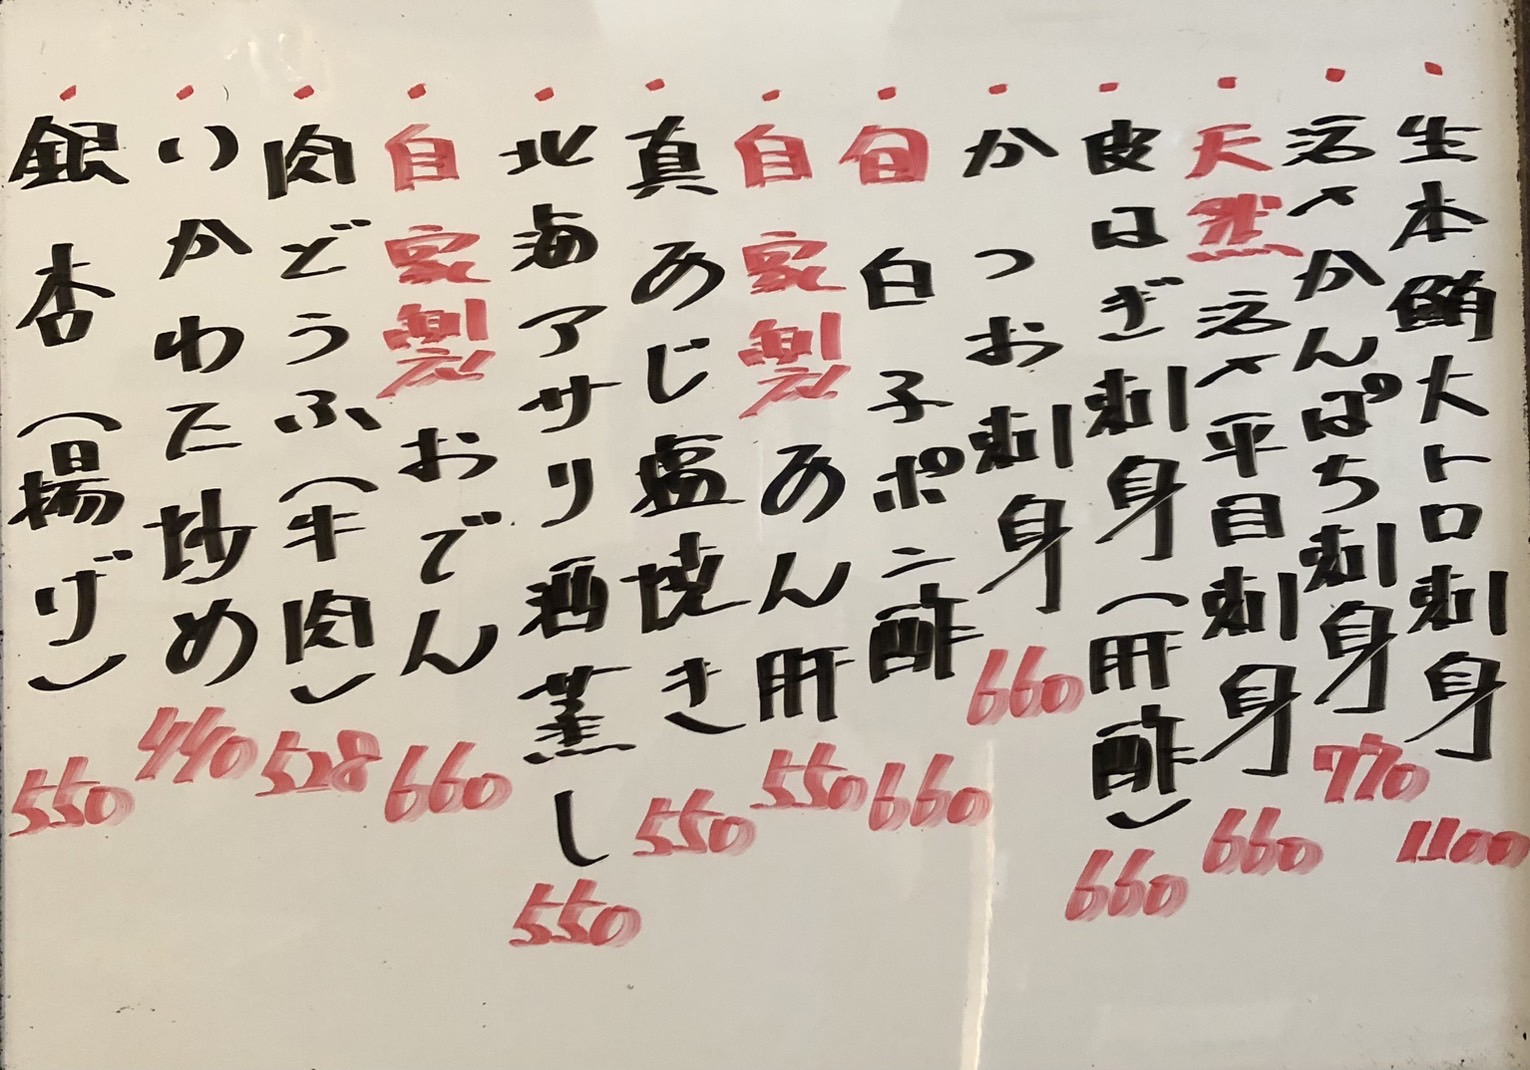 ・生本鮪大トロ刺身 1100
・活〆かんぱち刺身 770
・天然活〆平目刺身 660
・皮はぎ刺身(肝酢) 660
・かつお刺身 660
・旬白子ポン酢 660
・自家製あん肝 550
・真あじ塩焼き 550
・北海アサリ酒蒸し 550
・自家製おでん 660
・肉どうふ(牛肉) 528
・いかわた炒め 440
・銀杏(揚げ) 550